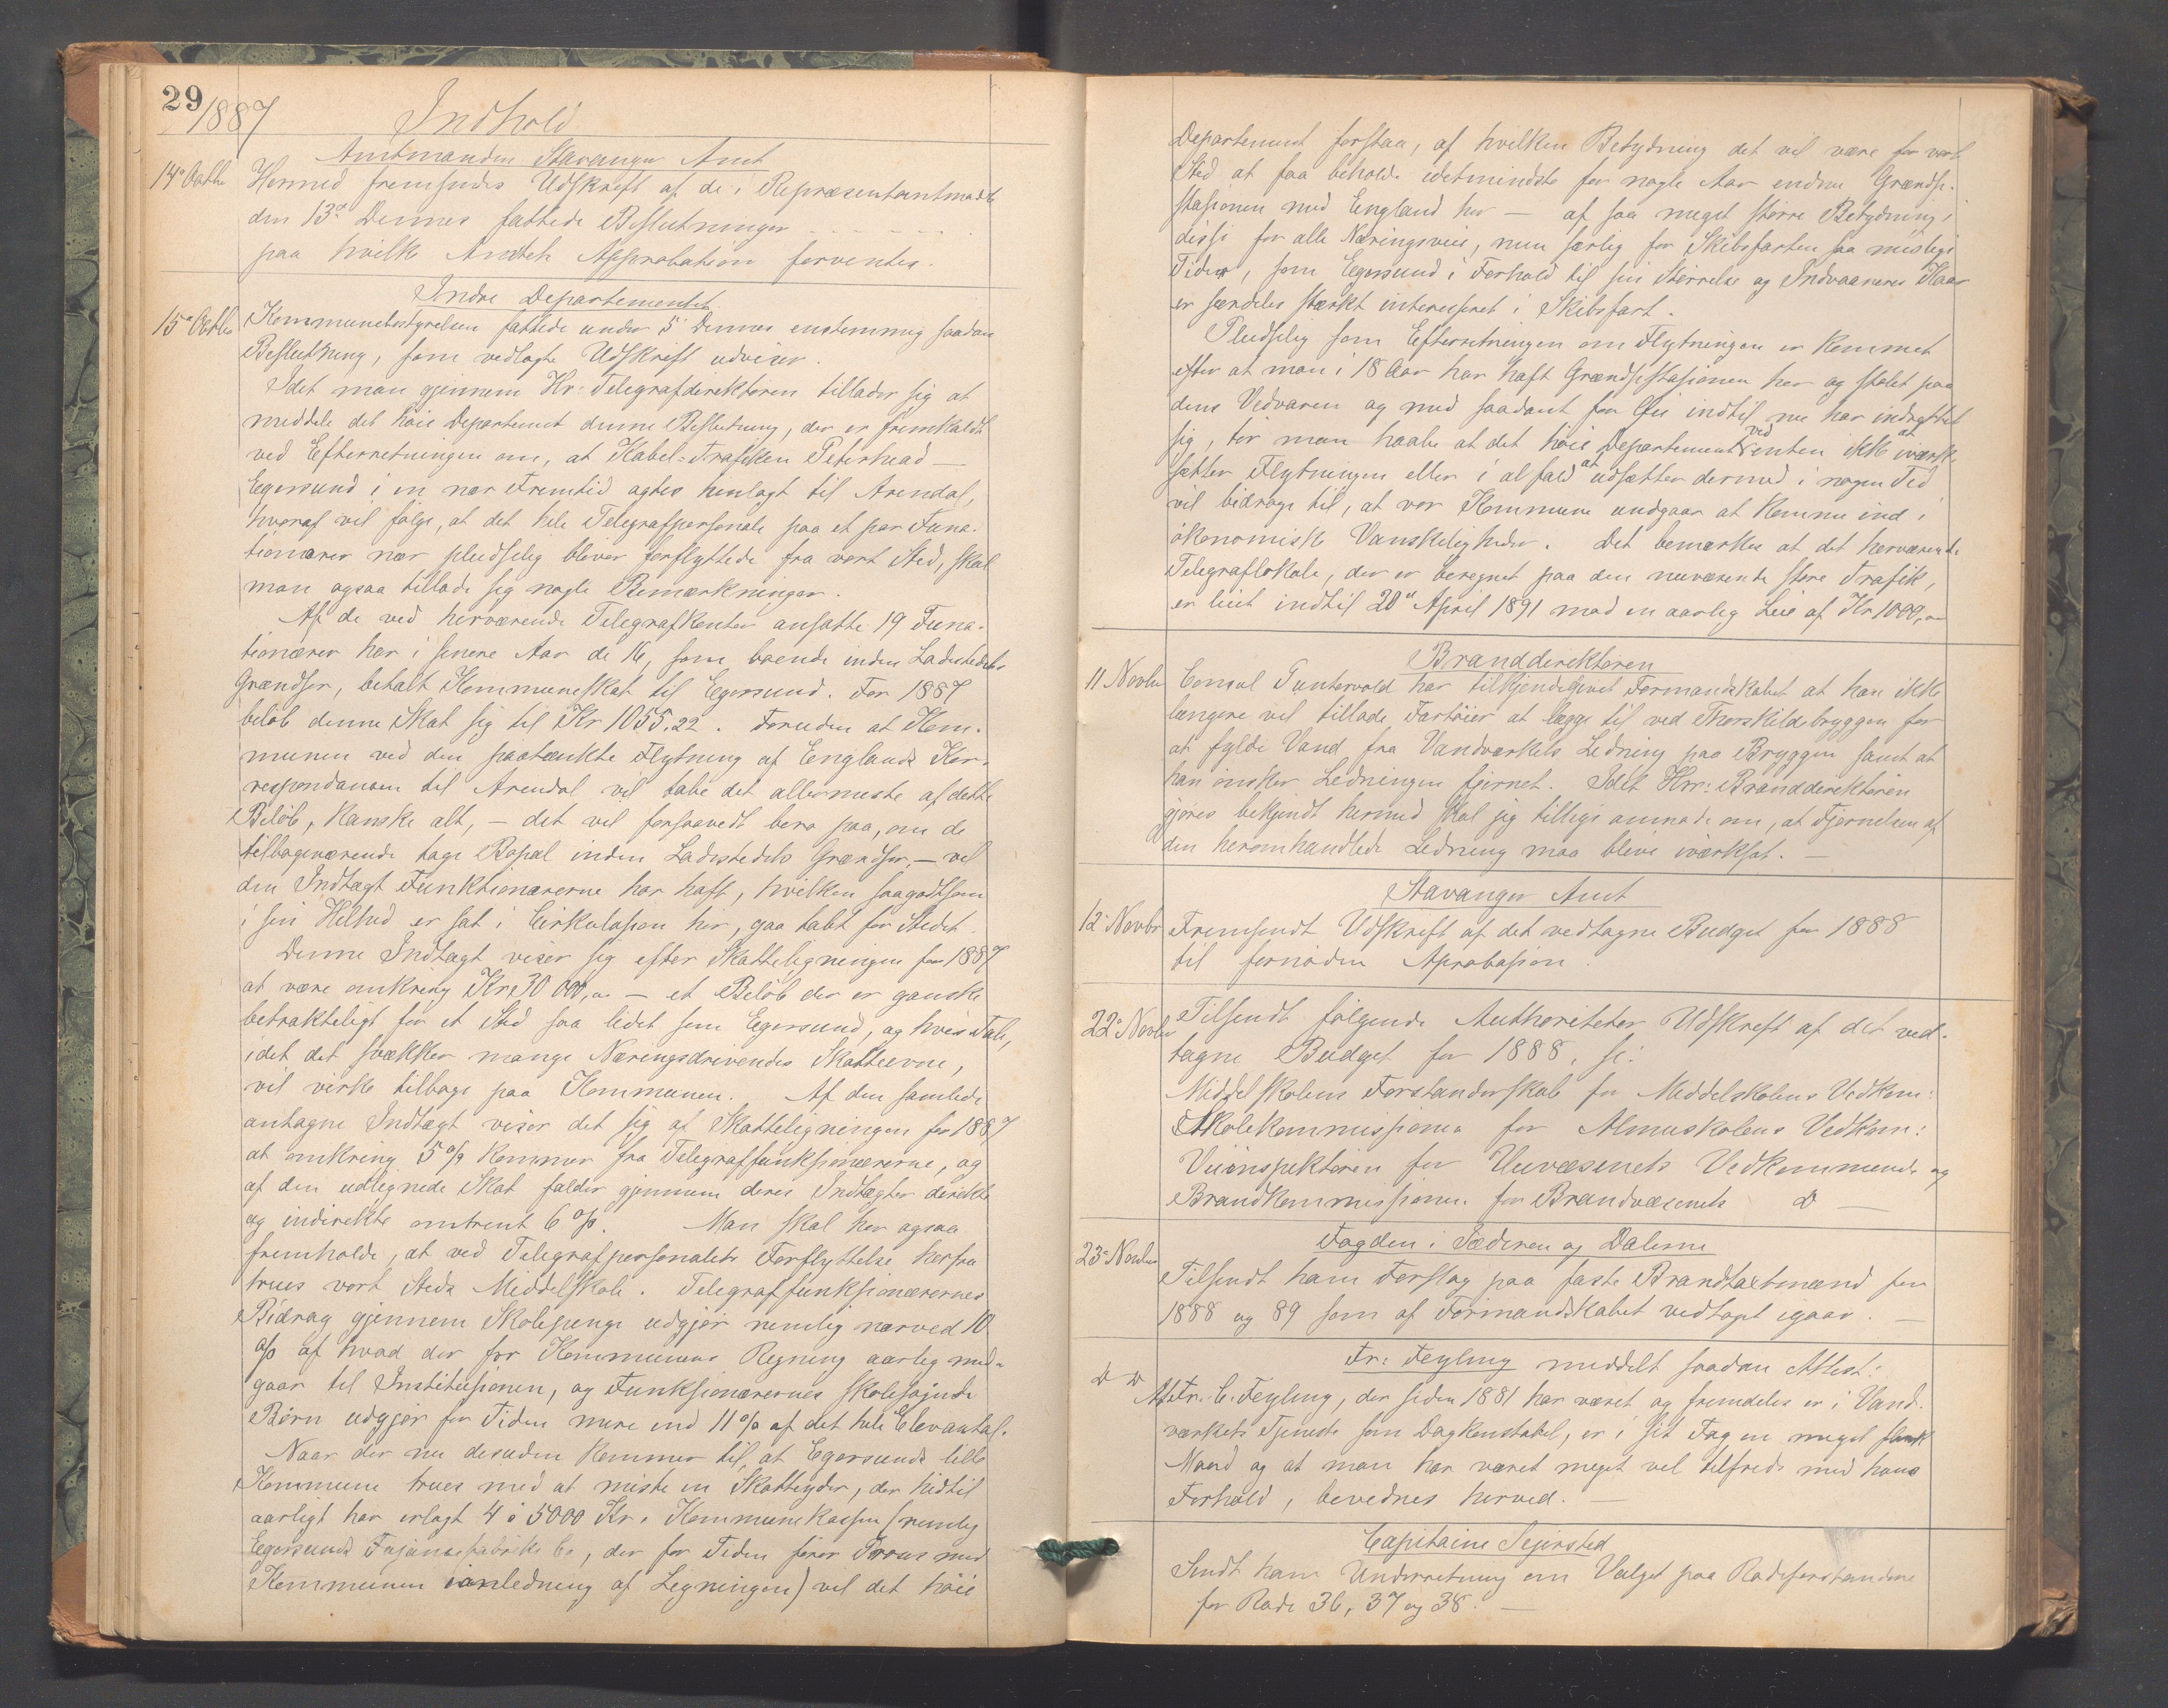 29
1887 Indhold
Amtmanden Stavanger Amt
14de Octbr Hermed fremsendes Udskrift af de i Repræsentantmødet
den 13de Dennes fattede Beslutninger - - - - - -
paa hvilke Amtets Approbation forventes.
Indre Departementet
15de Octbr Kommunebestyrelsen fattede under 5 Dennes enstemmig saadan
Beslutning, som vedlagte Udskrift udviser.
Idet man gjennem Hr: Telegrafdirektøren tillader sig at
meddele det høie Departement denne Beslutning, der er fremkaldt
ved Efterretningen om, at Kabel-Trafiken Peterhead—
Egersund i en nær Fremtid agtes henlagt til Arendal,
hvoraf vil følge, at det hele Telegrafpersonale paa et par Funk-
tionærer nær pludselig bliver forflyttede fra vort Sted, skal
man ogsaa tillade sig nogle Bemærkninger.
Af de ved herværende Telegrafkontor ansatte 19 Funk-
tionærer har i senere Aar de 16, som boende inden Ladestedets
Grændser, betalt Kommuneskat til Egersund. For 1887
beløb denne Skat sig til Kr 1055.22. Foruden at Kom-
munen ved den paatænkte Flytning af Englands Kor-
respondancen til Arendal vil tabe det allermeste af dette
Beløb, kanske alt, — det vel forsaavidt bero paa, om de
tilbageværende tage Bopæl inden Ladestedets Grændser, — vil
den Indtægt Funktionærerne har haft, hvilken saagodtsom
i sin Helhed er sat i Cirkulasjon her, gaa tabt for Stedet.
Denne Indtægt viser sig efter Skatteligningen for 1887
at være omkring Kr 30 000,00 — et Beløb der er ganske
betrakteligt for et Sted saa lidet som Egersund, og hvis Tab,
idet det svækker mange Næringsdrivendes Skatteevne,
vil virke tilbage paa Kommunen. Af den samlede
antagne Indtægt viser det sig af Skatteligningen for 1887
at omkring 5 % kommer fra Telegraffunksjonærerne, og
af den udlignede Skat falder gjennem deres Indtægter direkte
og indirekte omtrent 6 %. Man skal her ogsaa
fremholde, at ved Telegrafpersonalets Forflyttelse herfra
trues vort Steds Middelskole. Telegraffunksjonærernes
Bidrag gjennem Skolepenge udgjør nemlig nærved 10
% af hvad der for Kommunens Regning aarlig med-
gaar til Institusjonen, og Funksjonærernes skolesøgende
Børn udgjør for Tiden mere end 11 % af det hele Elevantal.
Naar der nu desuden kommer til, at Egersunds lille
Kommune trues med at miste en Skatteyder, der hidtil
aarligt har erlagt 4 à 5000 Kr. i Kommunekassen (nemlig
Egersunds Fajancefabriks Co, der for Tiden fører Proces med
Kommunen i anledning af Ligningen) vil det høie
Departement forstaa, af hvilken Betydning det vil være for vort
Sted at faa beholde idetmindste for nogle Aar endnu Grændse-
stasionen med England her — af saa meget større Betydning i
disse for alle Næringsveie, men særlig for Skibsfarten saa mislige
Tider, som Egersund i Forhold til sin Størrelse og Indvaaneres Kaar
er særdeles stærkt interesseret i Skibsfart.
Pludselig som Efterretningen om Flytningen er kommet
efter at man i 18 Aar har haft Grændsestasionen her og stolet paa
dens Vedvaren og med saadant for Øie indtil nu har indrettet
sig, tør man haabe at det høie Departement ved enten ikke at iværk-
sætter Flytningen eller i al fald at udsætter dermed i nogen Tid
vil bidrage til, at vor Kommune undgaar at komme ind i
økonomiske Vanskeligheder. Det bemærkes at det herværende
Telegraflokale, der er beregnet paa den nuværende store Trafik,
er leiet indtil 20de April 1891 mod en aarlig Leie af Kr 1000,00
Branddirektøren
11 Novbr Consul Puntervold har tilkjendegivet Formandskabet at han ikke
længere vil tillade Fartøier at lægge til ved Thorskildbryggen for
at fylde Vand fra Vandværkets Ledning paa Bryggen samt at
han ønsker Ledningen fjernet. Idet Hrr: Branddirektøren
gjøres bekjendt hermed skal jeg tillige anmode om, at Fjernelsen af
den heromhandlede Ledning maa blive iværksat. —
Stavanger Amt
12 Novbr Fremsendt Udskrift af det vedtagne Budget for 1888
til fornøden Aprobasion.
22 Novbr Tilsendt følgende Authoriteter Udskrift af det ved-
tagne Budget for 1888, se:
Middelskolens Forstanderskab for Middelskolens Vedkom:
Skolekommissionen for Almuskolens Vedkom:
Veiinspektøren for Veivæsenets Vedkommende og
Brandkommissionen for Brandvæsenets do —
Fogden i Jæderen og Dalerne
23 Novbr Tilsendt ham Forslag paa faste Brandtaxtmænd for
1888 og 89 som af Formandskabet vedtaget igaar. —
Fr: Feyling meddelt saadan Attest:
do do At Fr. C. Feyling, der siden 1881 har været og fremdeles er i Vand-
værkets Tjeneste som Dagkonstabel, er i sit Fag en meget flink
Mand og at man har været meget vel tilfreds med hans
Forhold, bevidnes herved. —
Capitaine Sejersted
Sendt ham Underretning om Valget paa Rodeforstandere
for Rode 36, 37 og 38. —